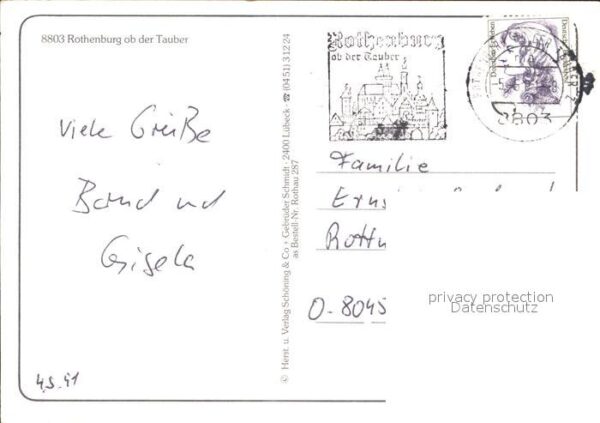 8803 Rothenburg ob der Tauber
Viele Grüße
Bernd und
Gisela
4.5.91
© Herst. u. Verlag Schöning & Co + Gebrüder Schmidt · 2400 Lübeck · ☎ (0451) 31224
as Bestell-Nr. Rothau 287
Rothenburg
ob der Tauber
8803
Familie
Erns
Rottw
O-8045
privacy protection
Datenschutz